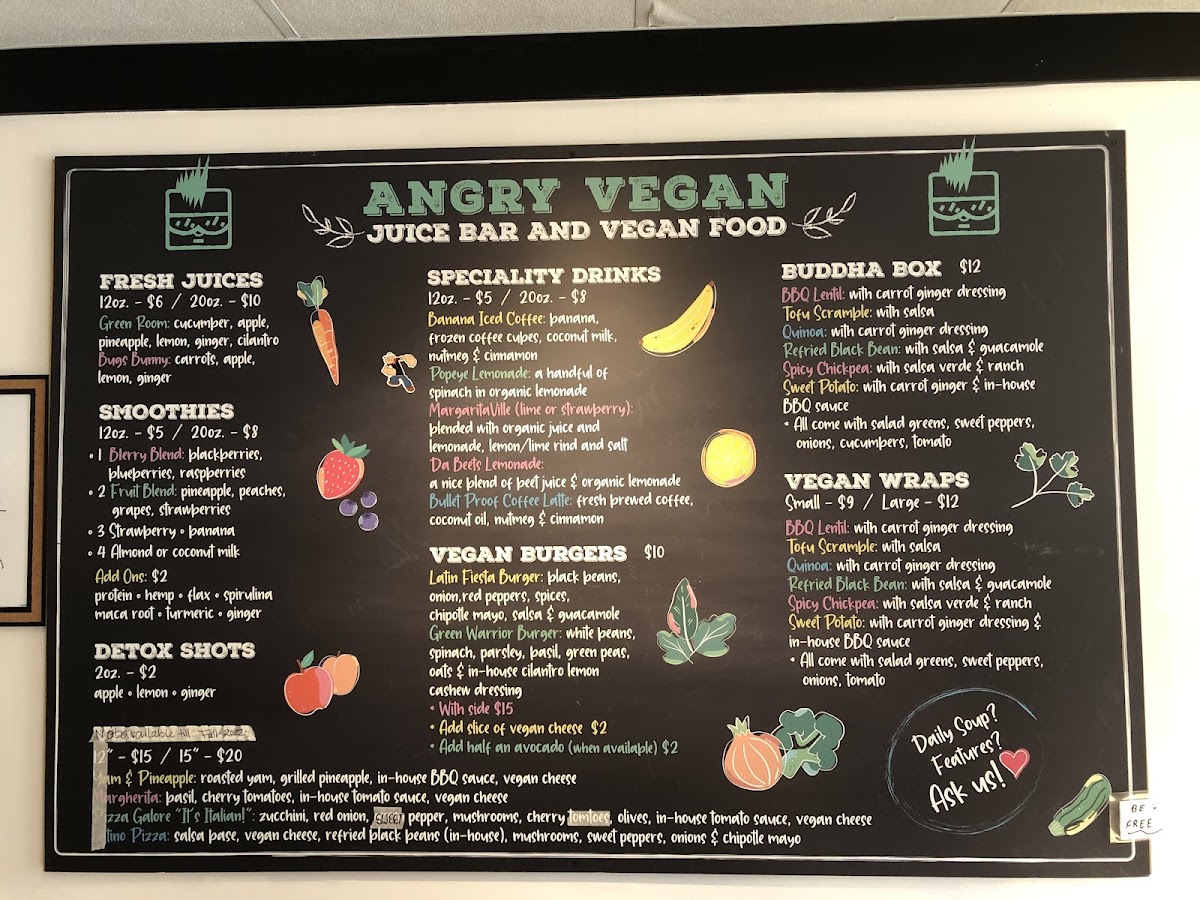 ANGRY VEGAN
JUICE BAR AND VEGAN FOOD
FRESH JUICES
12oz. - $6 / 20oz. - $10
Green Room: cucumber, apple,
pineapple, lemon, ginger, cilantro
Bugs Bunny: carrots, apple,
lemon, ginger
SMOOTHIES
12oz. - $5 / 20oz. - $8
• 1 Blerry Blend: blackberries,
blueberries, raspberries
• 2 Fruit Blend: pineapple, peaches,
grapes, strawberries
• 3 Strawberry • banana
• 4 Almond or coconut milk
Add Ons: $2
protein • hemp • flax • spirulina
maca root • turmeric • ginger
DETOX SHOTS
2oz. - $2
apple • lemon • ginger
SPECIALITY DRINKS
12oz. - $5 / 20oz. - $8
Banana Iced Coffee: banana,
frozen coffee cubes, coconut milk,
nutmeg & cinnamon
Popeye Lemonade: a handful of
spinach in organic lemonade
MargaritaVille (lime or strawberry):
blended with organic juice and
lemonade, lemon/lime rind and salt
Da Beets Lemonade:
a nice blend of beet juice & organic lemonade
Bullet Proof Coffee Latte: fresh brewed coffee,
coconut oil, nutmeg & cinnamon
VEGAN BURGERS $10
Latin Fiesta Burger: black beans,
onion,red peppers, spices,
chipotle mayo, salsa & guacamole
Green Warrior Burger: white beans,
spinach, parsley, basil, green peas,
oats & in-house cilantro lemon
cashew dressing
• With side $15
• Add slice of vegan cheese $2
• Add half an avocado (when available) $2
BUDDHA BOX $12
BBQ Lentil: with carrot ginger dressing
Tofu Scramble: with salsa
Quinoa: with carrot ginger dressing
Refried Black Bean: with salsa & guacamole
Spicy Chickpea: with salsa verde & ranch
Sweet Potato: with carrot ginger & in-house
BBQ sauce
• All come with salad greens, sweet peppers,
onions, cucumbers, tomato
VEGAN WRAPS
Small - $9 / Large - $12
BBQ Lentil: with carrot ginger dressing
Tofu Scramble: with salsa
Quinoa: with carrot ginger dressing
Refried Black Bean: with salsa & guacamole
Spicy Chickpea: with salsa verde & ranch
Sweet Potato: with carrot ginger dressing &
in-house BBQ sauce
• All come with salad greens, sweet peppers,
onions, tomato
Not available till Fall 2022
12" - $15 / 15" - $20
Yam & Pineapple: roasted yam, grilled pineapple, in-house BBQ sauce, vegan cheese
Margherita: basil, cherry tomatoes, in-house tomato sauce, vegan cheese
Pizza Galore "It's Italian!": zucchini, red onion, sweet pepper, mushrooms, cherry tomtoes, olives, in-house tomato sauce, vegan cheese
tino Pizza: salsa base, vegan cheese, refried black beans (in-house), mushrooms, sweet peppers, onions & chipotle mayo
Daily Soup?
Features?
Ask us!
BE
FREE